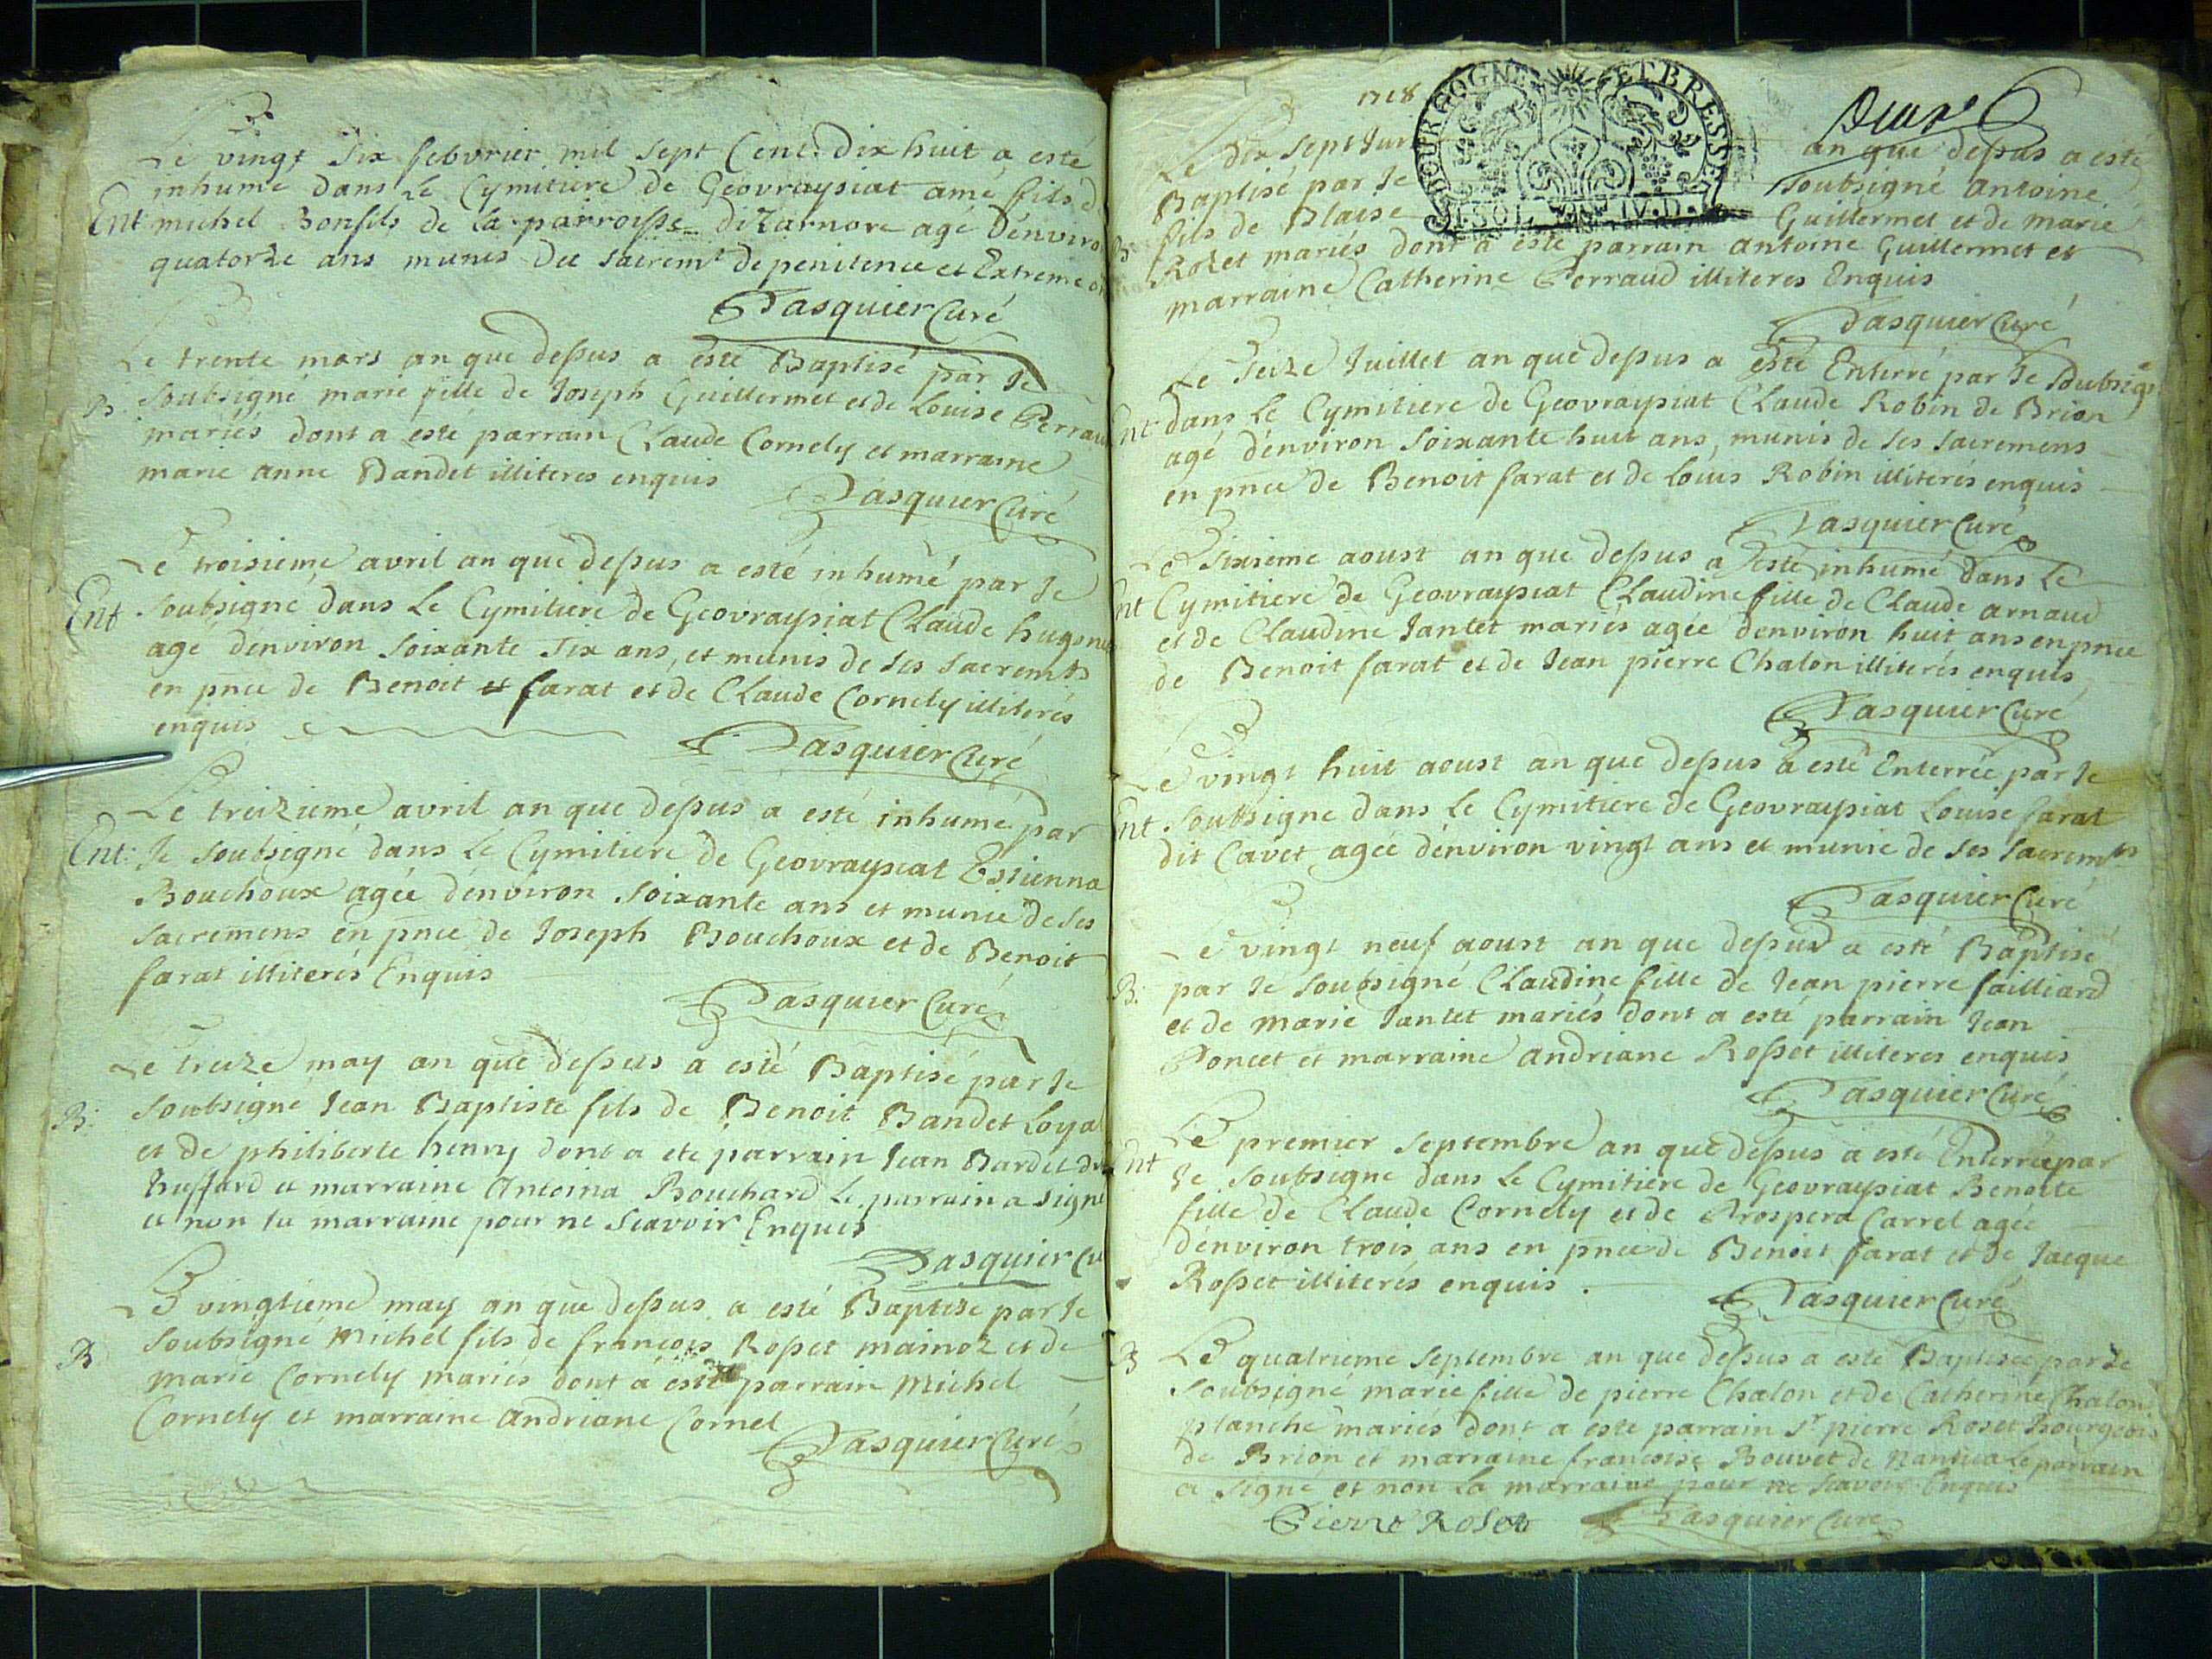 Le vingt six febvrier mil sept Cent dix huit a esté
inhumé dans Le Cymitiere de Geovraysiat amé fils d
Ent michel Bonfils de la parroisse dizarnore agé d'enviro
quatorze ans munis des sacrem.t de penitence et Extreme
Pasquier Curé
Le trente mars an que dessus a esté Baptisé par Je
B. soubsigné marie fille de Joseph Guillermet et de Louise Perrau
mariés dont a esté parrain Claude Cornely et marraine
marie anne Bandet illiteres enquis
Pasquier Curé
Le troisieme avril an que dessus a esté inhumé par Je
Ent soubsigné dans Le Cymitiere de Geovraysiat Claude hugon
agé d'environ soixante six ans, et munis de ses sacremts
en pnce de Benoit et farat et de Claude Cornely illiterés
enquis
Pasquier Curé
Le treizieme avril an que dessus a esté inhumé par
Ent: Je soubsigné dans Le Cymitiere de Geovraysiat Estienna
Bouchoux agée d'environ soixante ans et munie de ses
sacremens en pnce de Joseph Bouchoux et de Benoit
farat illiterés Enquis
Pasquier Curé
Le treize may an que dessus a esté Baptisé par Je
B: soubsigné Jean Baptiste fils de Benoit Bandet Loya
et de philiberte henry dont a ete parrain Jean Bardet
huffard et marraine Antoina Bouchard le parrain a signé
et non la marraine pour ne scavoir Enquis
Pasquier Cu
Le vingtieme may an que dessus a esté Baptise par Je
B soubsigné Michel fils de francois Rosset mainoz et de
marie Cornely mariés dont a esté parrain Michel
Cornely et marraine andriane Cornel
Pasquier Curé
1718
Le Dix sept Jui an que dessus a esté
Baptisé par Je soubsigné antoine
fils de Blaise Guillermet et de marie
B: Rozet mariés dont a esté parrain antoine Guillermet et
marraine Catherine Perraud illiteres Enquis
BOURGOGNE ET BRESSE
I. SOL. IV. D.
Pasquier Curé
Le seize Juillet an que dessus a esté Enterré par Je soubsigé
nt dans Le Cymitiere de Geovraysiat Claude Robin de Brion
agé d'environ soixante huit ans, munis de ses sacremens
en pnce de Benoit farat et de Louis Robin illiterés enquis
Pasquier Curé
Le sixieme aoust an que dessus a esté inhumé dans Le
nt Cymitiere de Geovraysiat Claudine fille de Claude arnaud
et de Claudine Jantet mariés agée d'environ huit ans en pnce
de Benoit farat et de Jean pierre Chalon illiterés enquis
Pasquier Curé
Le vingt huit aoust an que dessus a esté Enterrée par Je
nt soubsigné dans Le Cymitiere de Geovraysiat Louise farat
dit Cavet agée d'environ vingt ans et munie de ses sacremts
Pasquier Curé
Le vingt neuf aoust an que dessus a esté Baptisé
B: par Je soubsigné Claudine fille de Jean pierre failliard
et de marie Jantet mariés dont a esté parrain Jean
Poncet et marraine andriane Rosset illiteres enquis
Pasquier Curé
Le premier septembre an que dessus a esté Enterrée par
nt Je soubsigné dans Le Cymitiere de Geovraysiat Benoite
fille de Claude Cornely et de Prospera Carrel agée
d'environ trois ans en pnce de Benoit farat et de Jacque
Rosset illiterés enquis .
Pasquier Curé
B Le quatrieme septembre an que dessus a esté Baptisée par Je
soubsigné marie fille de pierre Chalon et de Catherine Chalon
planche mariés dont a esté parrain Sr pierre Roset Bourgeois
de Brion et marraine francoise Bouvet de Nantua le parrain
a signé et non La marraine pour ne scavoir Enquis
Pierre Roset Pasquier Curé